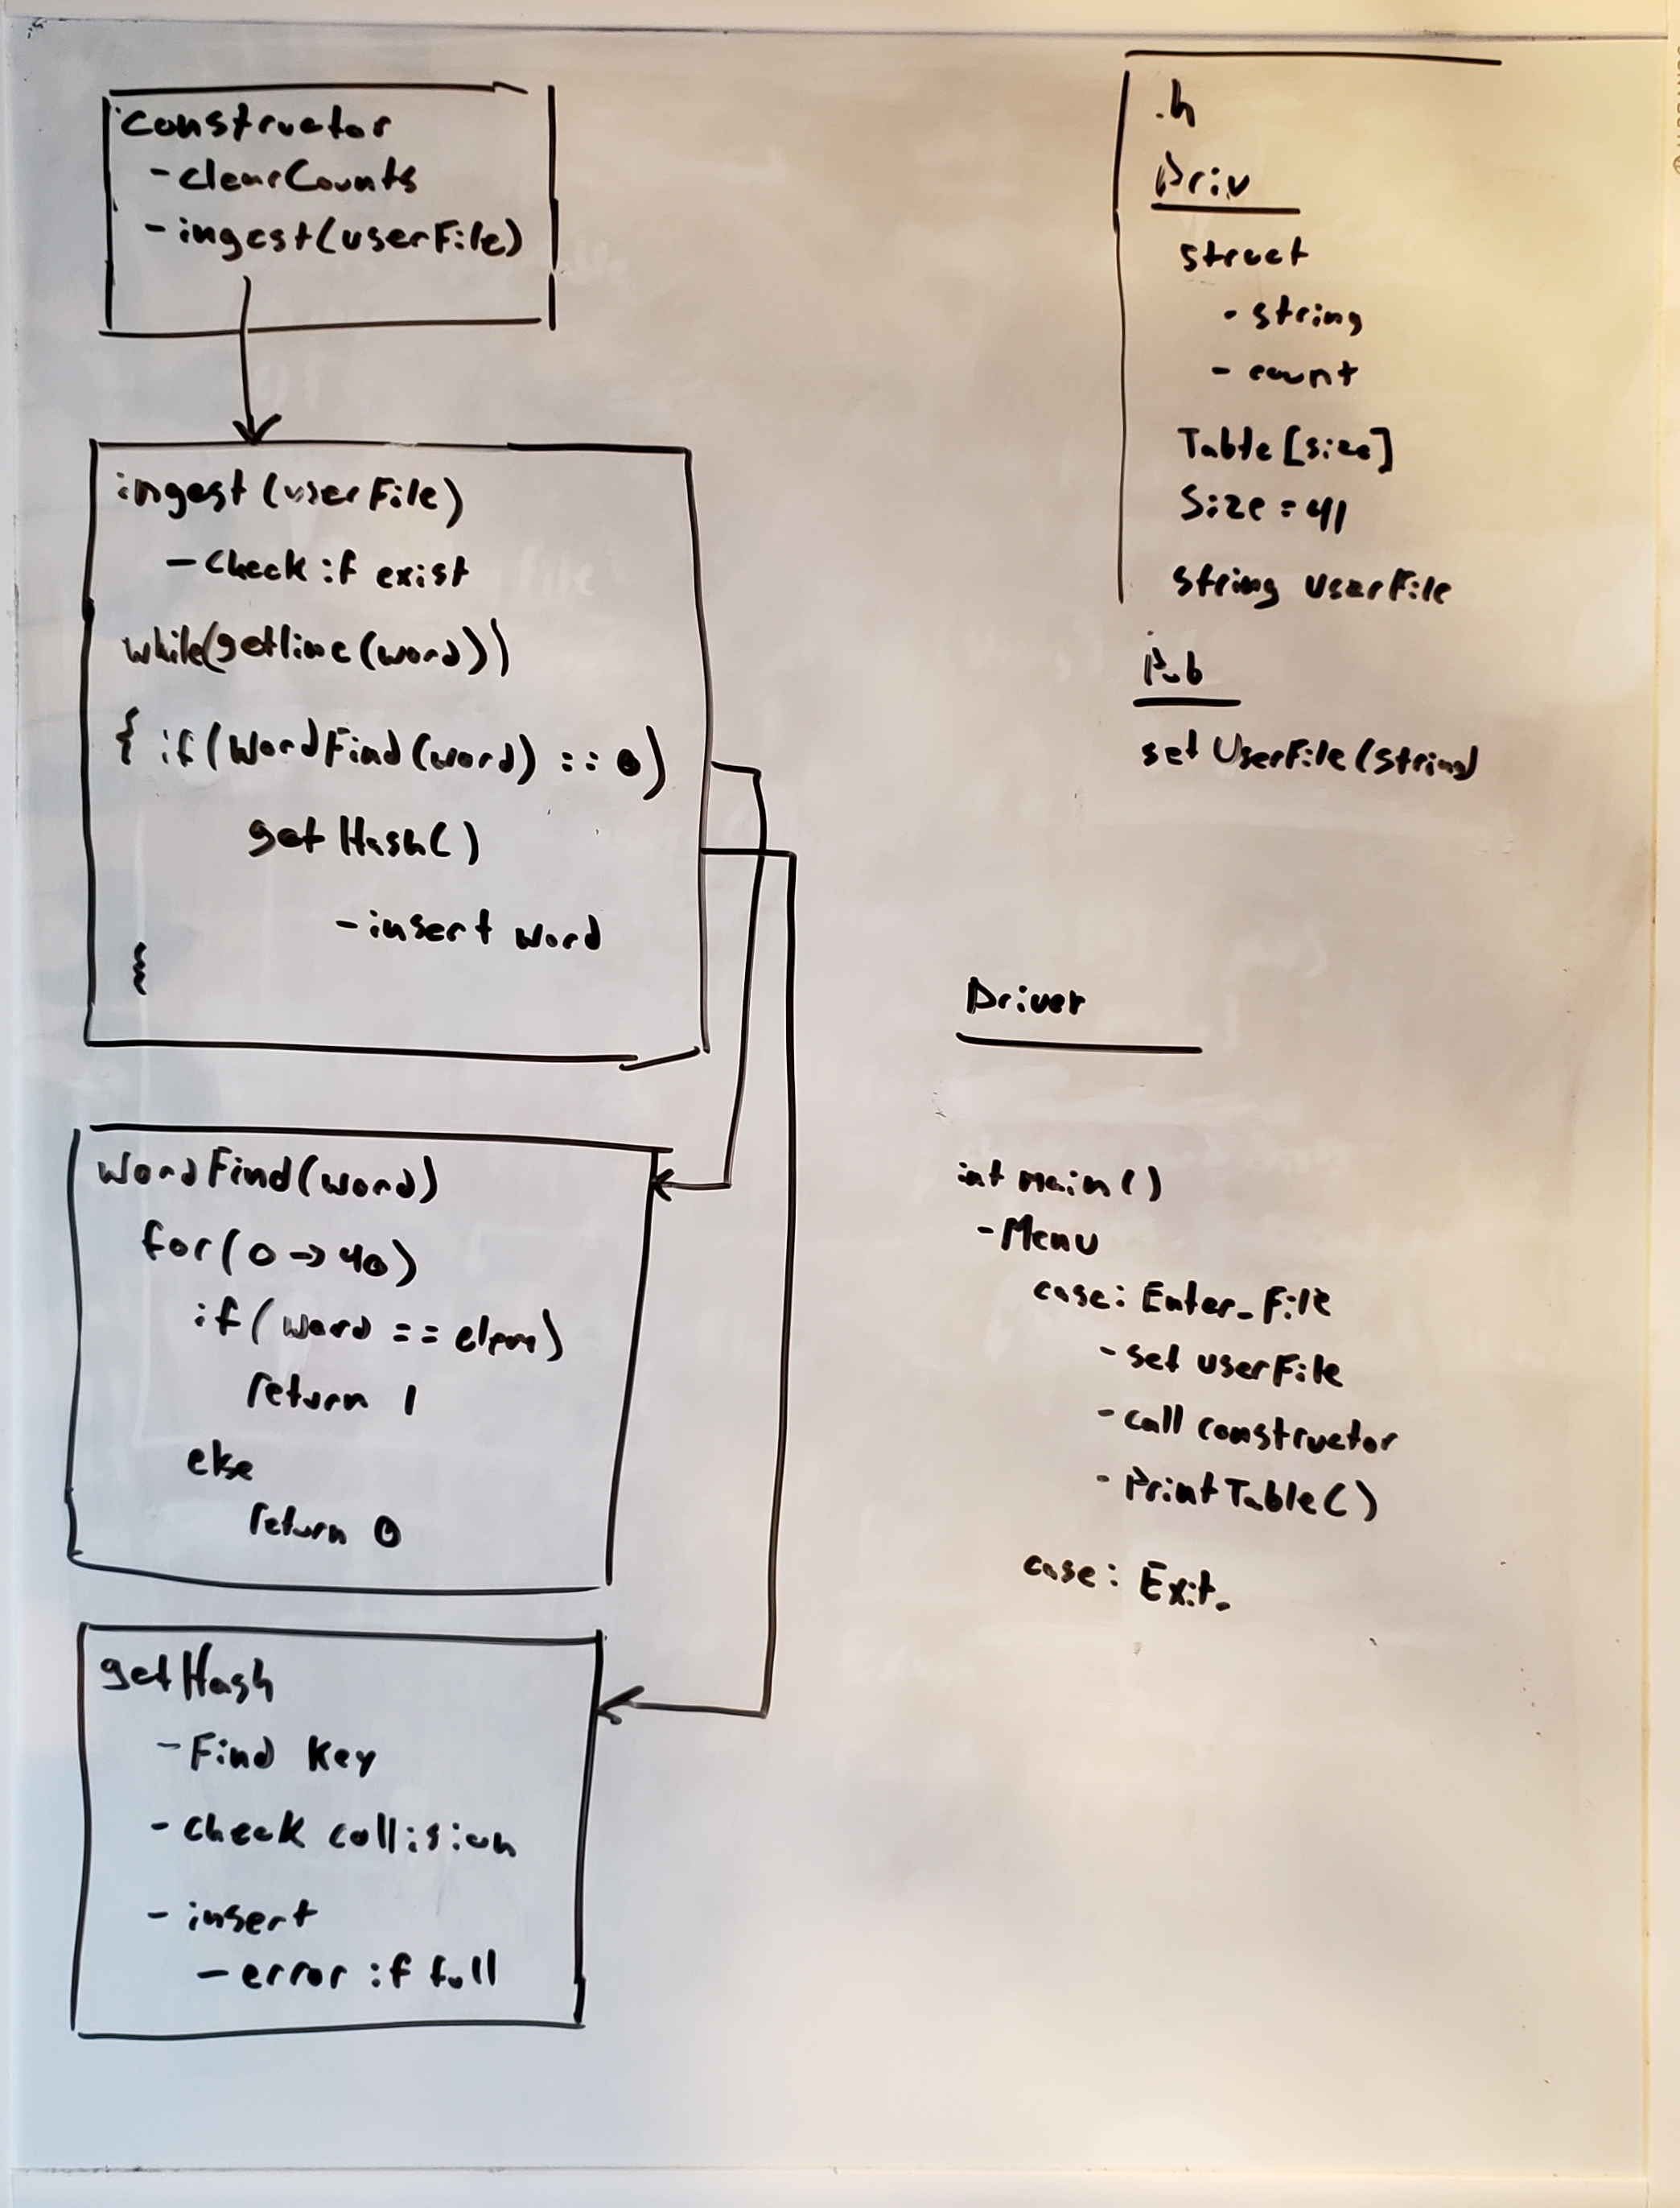 constructor
- clearCounts
- ingest(userFile)
ingest(userFile)
- check if exist
while(getline(word))
{ if(WordFind(word) == 0)
getHash()
- insert word
}
WordFind(word)
for(0 → 40)
if(word == elem)
return 1
else
return 0
getHash
- Find Key
- check collision
- insert
- error if full
.h
Priv
struct
- string
- count
Table[size]
Size = 41
string UserFile
Pub
set UserFile(string)
Driver
int main()
- Menu
case: Enter_File
- set userFile
- call constructor
- PrintTable()
case: Exit_